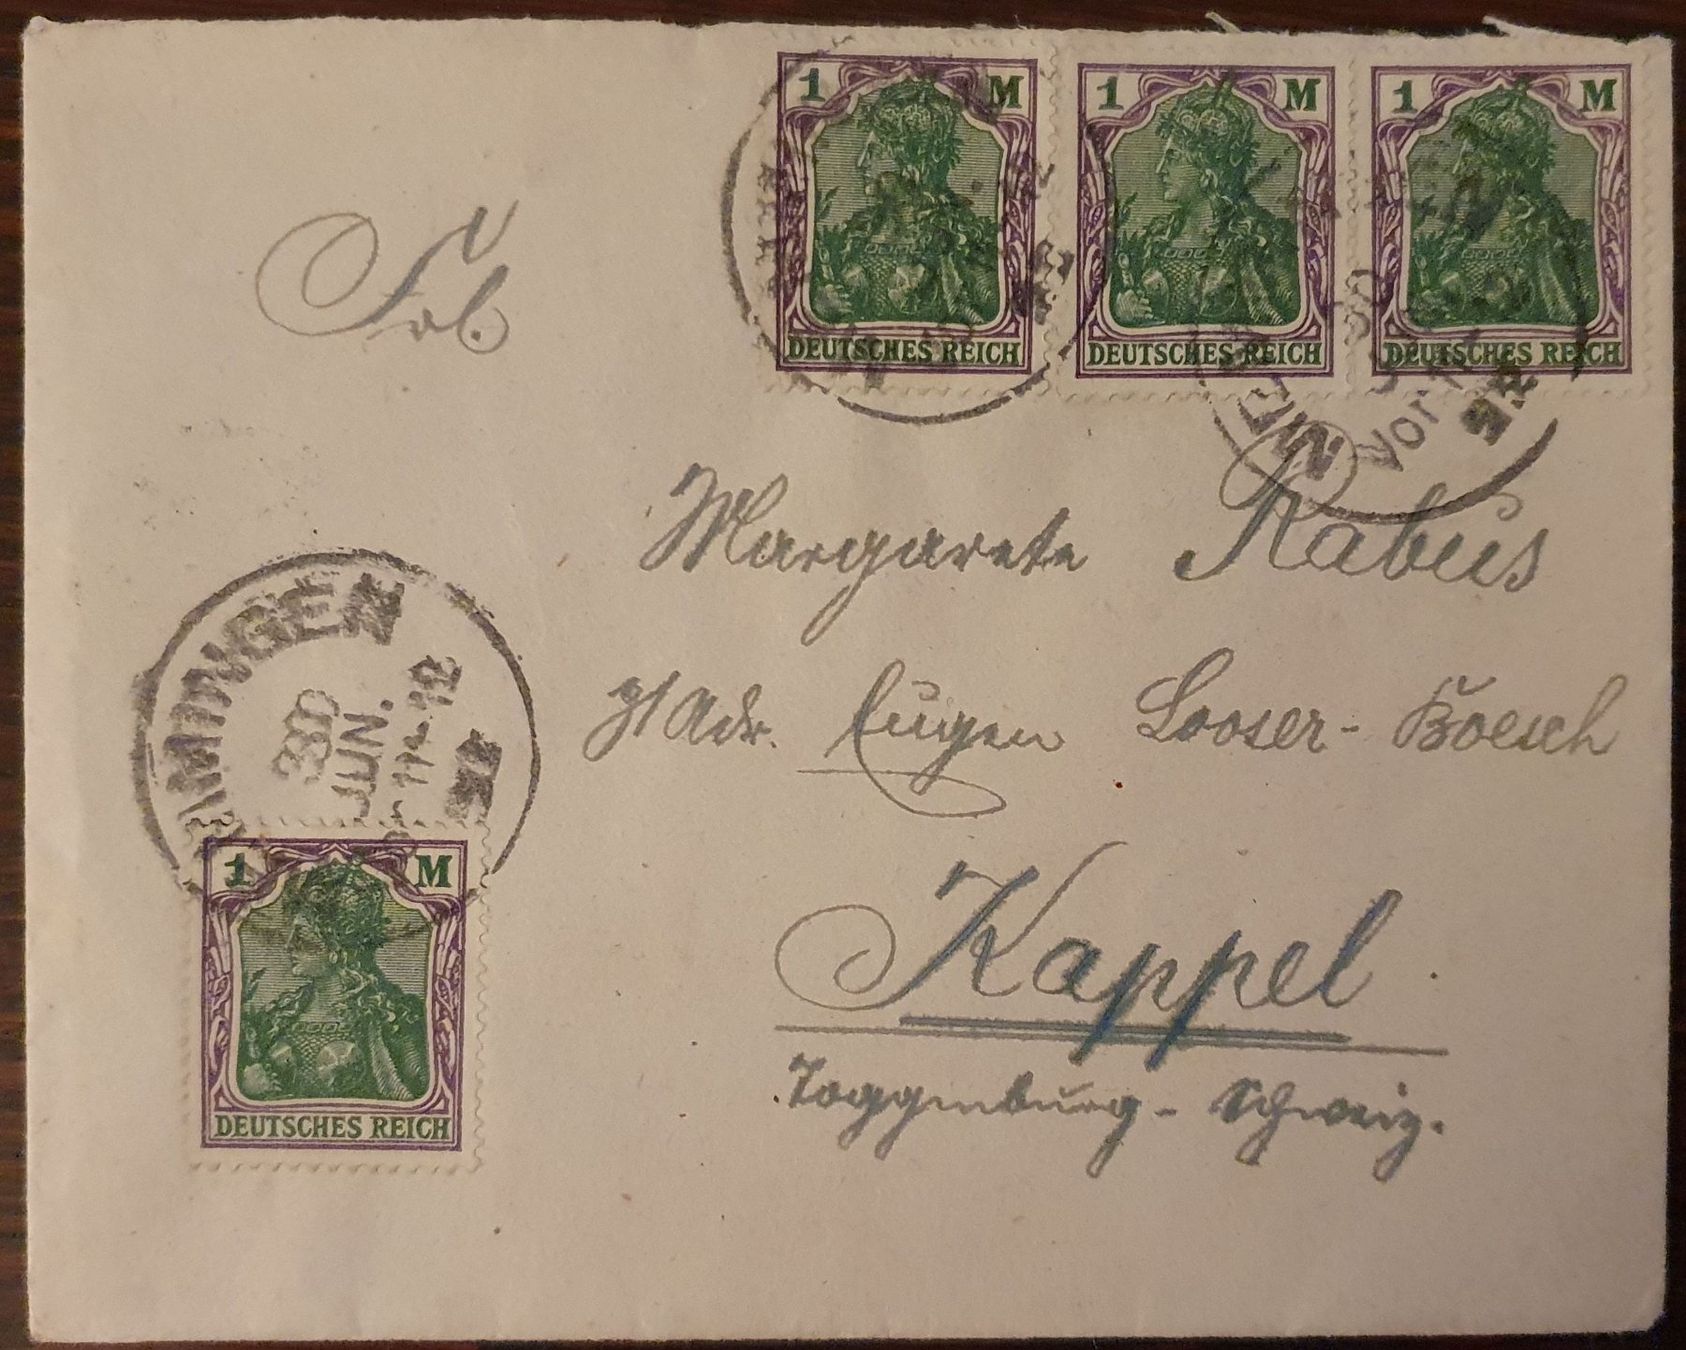 1 M 1 M 1 M
DEUTSCHES REICH DEUTSCHES REICH DEUTSCHES REICH
Vor
Frl.
Margarete Rabus
p/Adr. Eugen Looser-Boesch
Kappel
Toggenburg - Schweiz.
MINGEN
30
JUN.
11-12
1 M
DEUTSCHES REICH